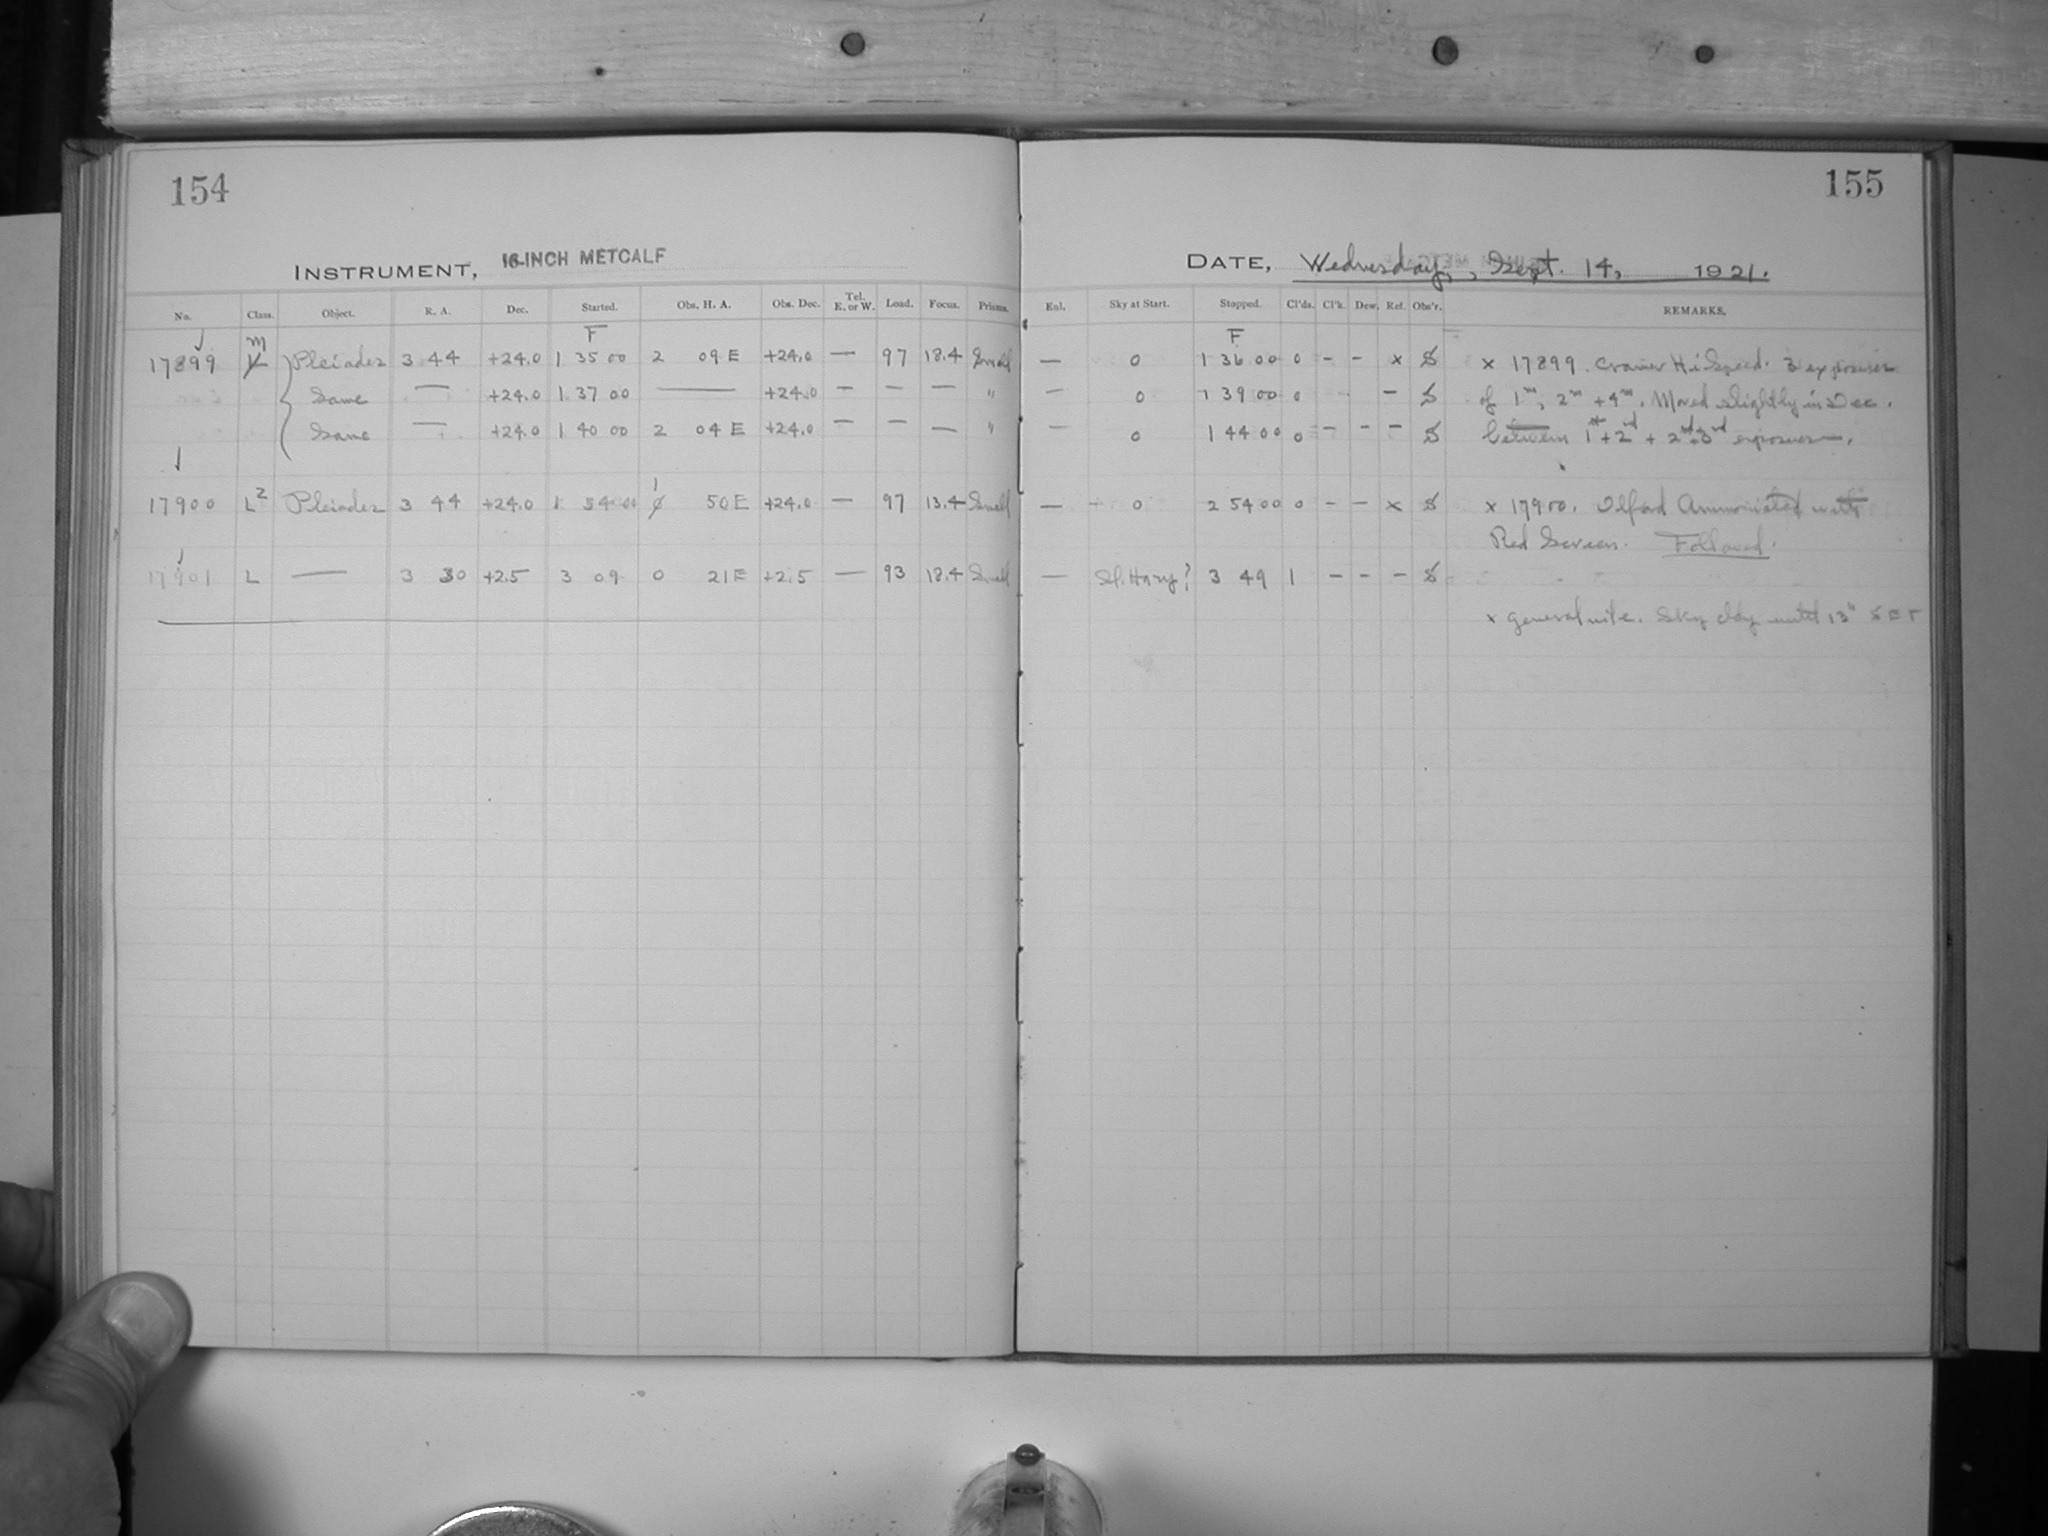 154
155
INSTRUMENT, 16-INCH METCALF
DATE, Wednesday, Sept. 14, 1921.
No. Class. Object. R. A. Dec. Started. Obs. H. A. Obs. Dec. Tel. E. or W. Load. Focus. Prisms. Enl. Sky at Start. Stopped. Cl'ds. Cl'k. Dew. Ref. Obs'r. REMARKS.
F F
17899 m L Pleiades 3 44 +24.0 1 35 00 2 09 E +24.0 — 97 18.4 Small — 0 1 36 00 0 - - x S x 17899. Cramer Hi Speed. 3 exposures
Same — +24.0 1 37 00 — +24.0 — — — " — 0 1 39 00 0 - S of 1m, 2m + 4m. Moved slightly in Dec.
Same — +24.0 1 40 00 2 04 E +24.0 — — — " — 0 1 44 00 0 - - - S between 1st + 2nd + 2nd + 3rd exposures.
17900 L2 Pleiades 3 44 +24.0 1 54 00 1 0 50 E +24.0 — 97 13.4 Small — 0 2 54 00 0 - - x S x 17900. Ilford Ammoniated with
Red Screen. Followed.
17901 L — 3 30 +2.5 3 09 0 21 E +2.5 — 93 18.4 Small — Sl. Hazy? 3 49 1 - - - S
x general note. Sky cldy until 13h SET